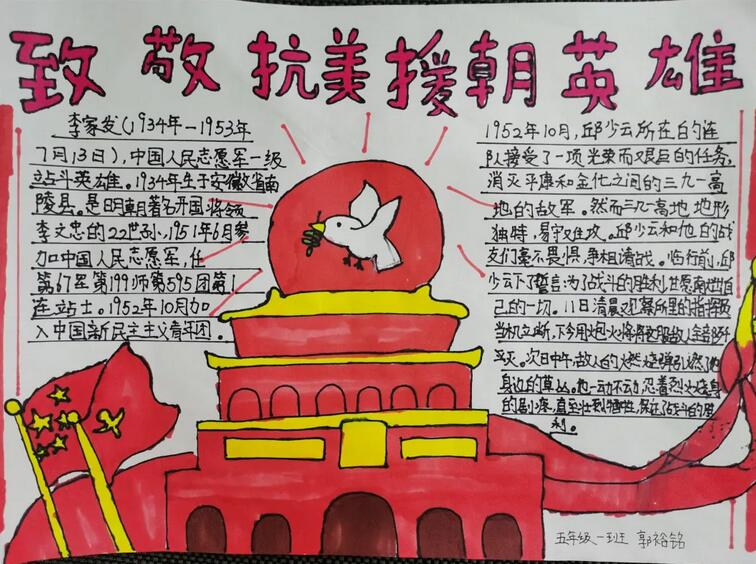 致敬抗美援朝英雄
李家发(1934年一1953年
7月13日),中国人民志愿军一级
战斗英雄。1934年生于安徽省南
陵县。是明朝著名开国将领
李文忠的22世孙,1951年6月参
加中国人民志愿军,任
第67军第199师第595团第1
连战士。1952年10月加
入中国新民主主义青年团。
1952年10月,邱少云所在的连
队接受了一项光荣而艰巨的任务,
消灭平康和金化之间的三九一高
地的敌军。然而三九一高地地形
独特,易守难攻。邱少云和他的战
友们毫不畏惧,争相请战。临行前,邱
少云下了誓言:为了战斗的胜利,甘愿献出自
己的一切。11日清晨观察所里的指挥员
当机立断,下令用炮火将将这股敌人全部歼
灭。次日中午,敌人的燃烧弹引燃了他
身边的草丛。他一动不动,忍着烈火烧身
的剧疼,直至壮烈牺牲,保证了战斗的胜
利。
五年级一班 郭裕铭